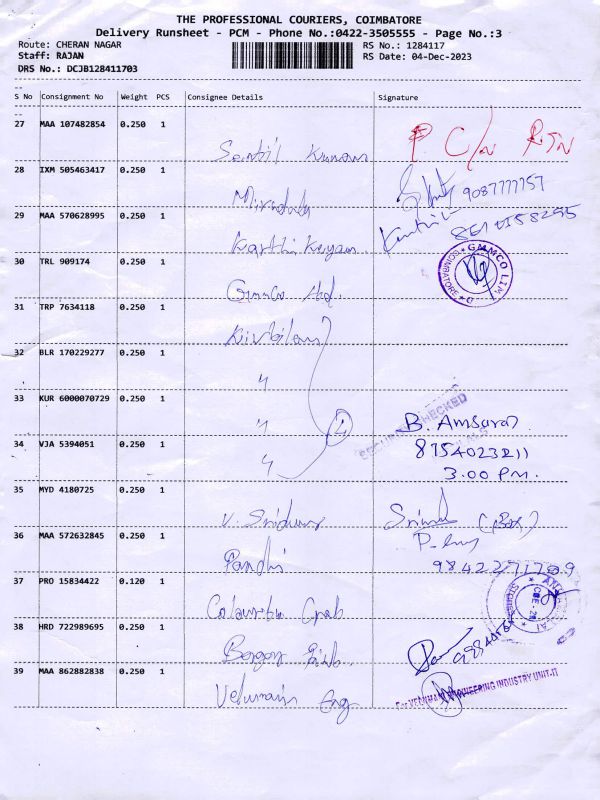 THE PROFESSIONAL COURIERS, COIMBATORE
Delivery Runsheet - PCM - Phone No.:0422-3505555 - Page No.:3
Route: CHERAN NAGAR RS No.: 1284117
Staff: RAJAN RS Date: 04-Dec-2023
DRS No.: DCJB128411703
S No Consignment No Weight PCS Consignee Details Signature
27 MAA 107482854 0.250 1
Senthil Kumar
28 IXM 505463417 0.250 1
9087777757
Mirudula
29 MAA 570628995 0.250 1
Karthikeyan
30 TRL 909174 0.250 1
GMMCO LIM COIMBATORE
Gmmco
31 TRP 7634118 0.250 1
32 BLR 170229277 0.250 1
〃
33 KUR 6000070729 0.250 1
〃 4 B. Amsaraj
SECURITY CHECKED
34 VJA 5394051 0.250 1 8754023211
〃 3.00 PM.
35 MYD 4180725 0.250 1
V. Sridhar
36 MAA 572632845 0.250 1
Pandi 9842271709
37 PRO 15834422 0.120 1
38 HRD 722989695 0.250 1
39 MAA 862882838 0.250 1
ENGINEERING INDUSTRY UNIT-II
Velumani Eng